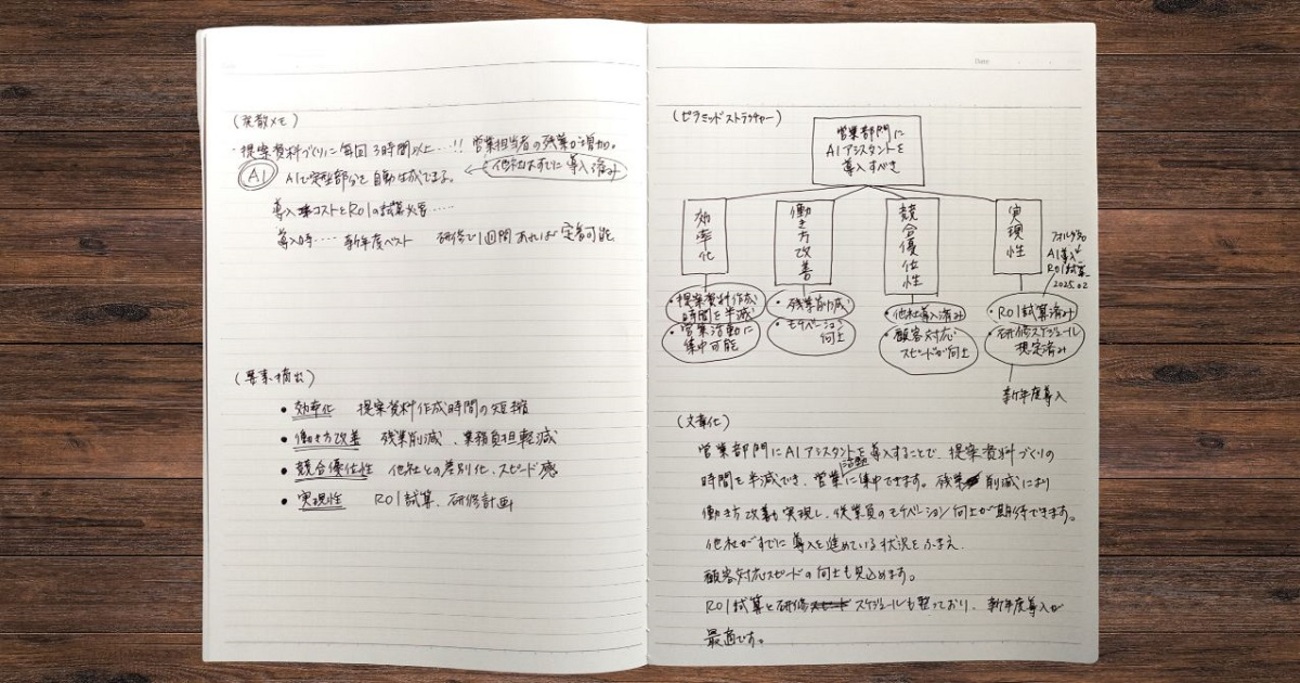 (発散メモ)
・提案資料づくりに毎回3時間以上…!! 営業担当者の残業が増加。
AI AIで定型部分を自動生成できる。 ← ・他社はすでに導入済み
導入コストとROIの試算必要……
導入時……新年度ベスト 研修で1週間あれば定着可能
(要素摘出)
● 効率化 提案資料作成時間の短縮
● 働き方改善 残業削減、業務負担軽減
● 競合優位性 他社との差別化、スピード感
● 実現性 ROI試算、研修計画
Date
(ピラミッドストラクチャー)
営業部門に
AIアシスタントを
導入すべき
効率化
働き方改善
競合優位性
実現性
AI導入
ROI試算
2025.02
・提案資料作成
時間を半減
・営業活動に
集中可能
・残業削減
・モチベーション
向上
・他社導入済み
・顧客対応
スピードが向上
・ROI試算済み
・研修スケジュール
想定済み
新年度導入
(文章化)
営業部門にAIアシスタントを導入することで、提案資料づくりの
時間を半減でき、営業活動に集中できます。残業削減により
働き方改善も実現し、従業員のモチベーション向上が期待できます。
他社がすでに導入を進めている状況をふまえ、
顧客対応スピードの向上も見込めます。
ROI試算と研修スケジュールも整っており、新年度導入が
最適です。